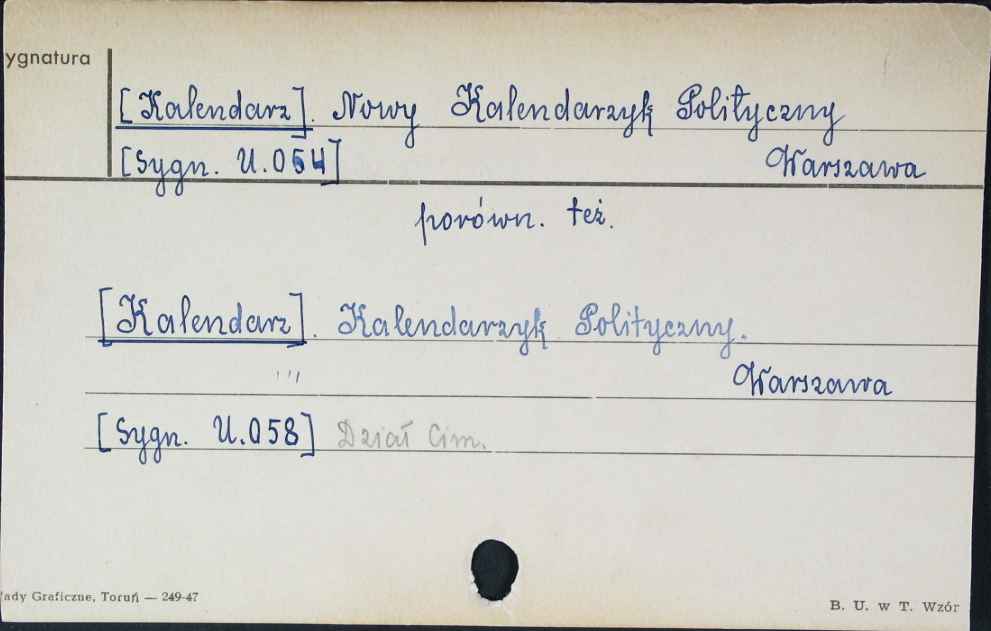 ygnatura
[Kalendarz]. Nowy Kalendarzyk Polityczny
[Sygn. U.054] Warszawa
porówn. też.
[Kalendarz]. Kalendarzyk Polityczny.
Warszawa
[Sygn. U.058] Dział Cim.
ady Graficzne, Toruń — 249-47
B. U. w T. Wzór